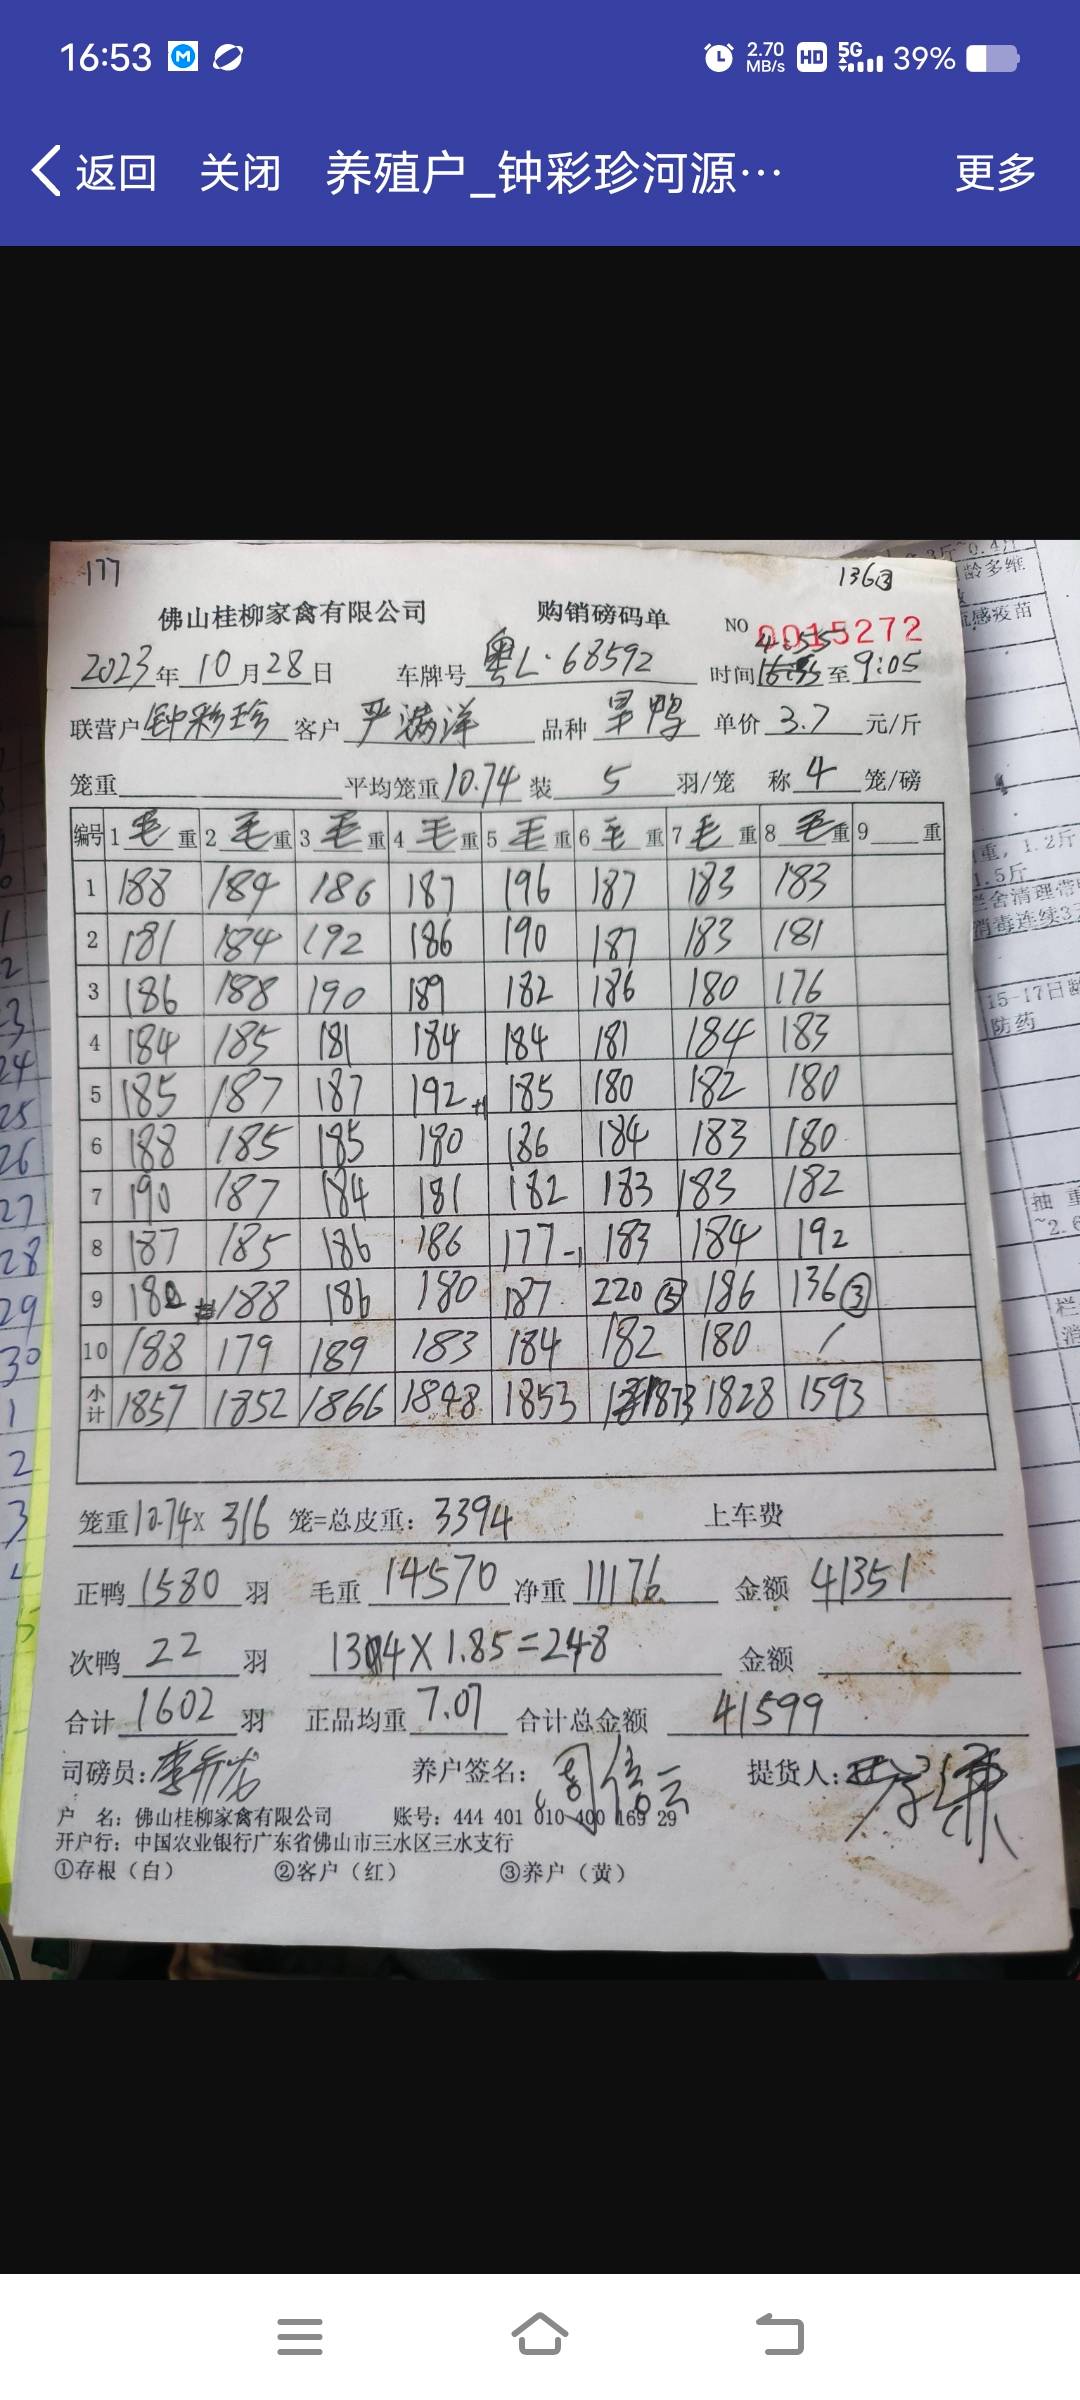 16:53 2.70 MB/s HD 5G 39%
返回 关闭 养殖户_钟彩珍河源… 更多
177 136③
佛山桂柳家禽有限公司 购销磅码单 NO 0015272
2023年10月28日 车牌号 粤L·68592 时间 4:55 至 9:05
联营户 钟彩珍 客户 严满洋 品种 旱鸭 单价 3.7 元/斤
笼重 平均笼重 10.74 装 5 羽/笼 称 4 笼/磅
编号 1 毛 重 2 毛 重 3 毛 重 4 毛 重 5 毛 重 6 毛 重 7 毛 重 8 毛 重 9 重
1 188 184 186 187 196 187 183 183
2 181 184 192 186 190 187 183 181
3 186 188 190 189 182 186 180 176
4 184 185 181 184 184 181 184 183
5 185 187 187 192 +1 185 180 182 180
6 188 185 185 180 186 184 183 180
7 190 187 184 181 182 183 183 182
8 187 185 186 186 177 -1 183 184 192
9 180 188 186 180 187 220⑤ 186 136③
10 188 179 189 183 184 182 180 /
小计 1857 1852 1866 1848 1853 1873 1828 1593
笼重 10.74 X 316 笼=总皮重: 3394 上车费
正鸭 1580 羽 毛重 14570 净重 11176 金额 41351
次鸭 22 羽 134 X 1.85=248 金额
合计 1602 羽 正品均重 7.07 合计总金额 41599
司磅员: 养户签名: 周信云 提货人:
户 名: 佛山桂柳家禽有限公司 账号: 444 401 010 400 169 29
开户行: 中国农业银行广东省佛山市三水区三水支行
①存根(白) ②客户(红) ③养户(黄)
龄多维
流感疫苗
重, 1.2斤
1.5斤
15-17日龄
防药
24
25
26
27
28
29
30
1
2
3